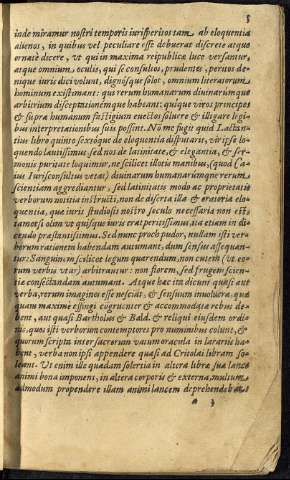 5
inde miramur nostri temporis iurisperitos tam ab eloquentia
alienos, in quibus vel peculiare esse debuerat disertè atque
ornatè dicere, vt qui in maxima reipublicæ luce versantur,
atque omnium oculis, qui se consultos, prudentes, peritos de-
nique iuris dici volunt, dignósque solos, omnium literarum
hominum existimant: qui rerum humanarum diuinarúmque
arbitrium disceptationémque habeant: quique viros principes
& supra humanum fastigium euectos soluere & illigare legi-
bus interpretationibus suis possint. Nõ me fugit quid Lactan-
tius libro quinto sexóque de eloquentia disputarit, vir ipse lo-
quendo latinissimus, sed nos de latinitate, & elegantia, & ser-
monis puritate loquimur, ne scilicet illotis manibus, (quod Ca-
ius Iurisconsultus vetat) diuinarum humanarúmque rerum
scientiam aggrediantur, sed latinitatis modo ac proprietatis
verborum notitia instructi, non de diserta illa & oratoria elo-
quentia, quæ iuris studiosis nostro seculo necessaria non est,
tametsi olim vt quisque iuris erat peritissimus, ita etiam in di-
cendo præstantissimus. Sed nunc proch pudor, nullam isti ver-
borum rationem habendam autumant, dum sensus assequan-
tur: Sanguinem scilicet legum quærendum, non cutem (vt eo-
rum verbis vtar) arbitrantur: non florem, sed frugem scien-
tiæ consectandam autumant. Atque hæc ita dicunt quasi aut
verba, rerum imagines esse nesciāt, & sensuum inuolucra, quæ
quam maxime effingi cognscier & accommodata rebus de-
bent, aut quasi Bartholus & Bald. & reliqui eiusdem ordi-
nis, quos isti verborum contemptores pro numinibus colunt, &
quorum scripta inter sacrorum vatum oracula in larariis ha-
bent, verba non ipsi appendere quasi ad Critolai libram so-
leant. Vt enim ille quadam solertia in altera libræ suæ lance
animi bona imponens, in altera corporis & externa, multum
admodum propendere illam animi lancem deprehendebat:
a 3